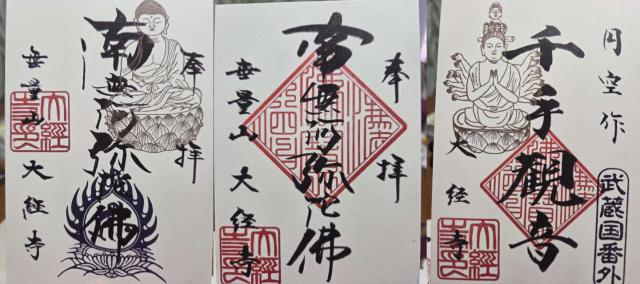 奉拝
南無阿弥陀佛
無量山 大経寺
奉拝
南無阿弥陀佛
無量山 大経寺
円空作
武蔵国番外
千手觀音
大経寺